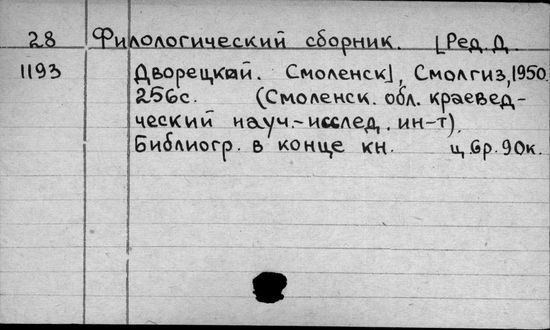 28 Филологический сборник. [Ред. Д.
1193 Дворецкий. Смоленск], Смолгиз, 1950.
256с. (Смоленск. обл. краевед-
ческий науч.-исслед. ин-т).
Библиогр. в конце кн. ц. 6р. 90к.